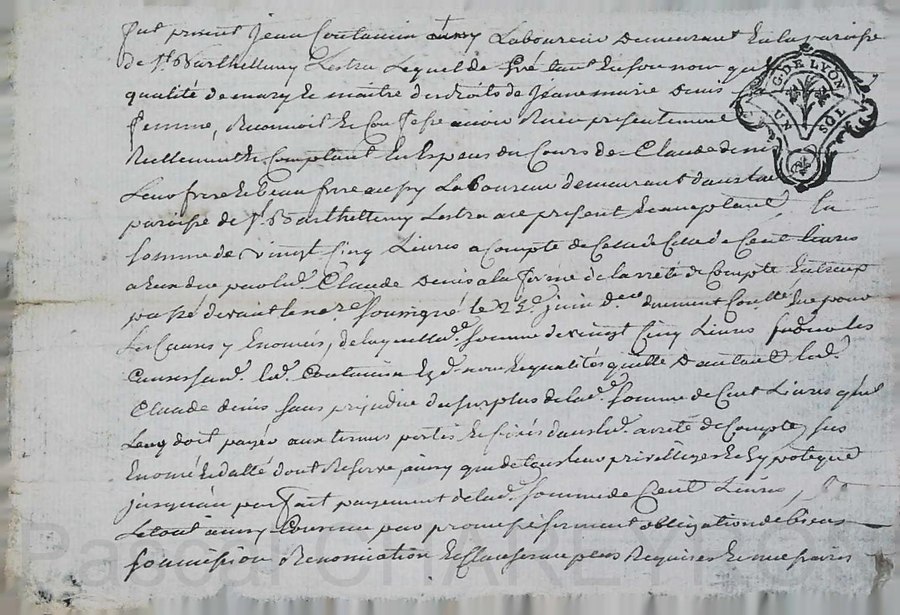 fut présent Jean Coutanin aussy Laboureur Demeurant En la paroisse
de St. Barthellemy Lestra Lequel de gré tant En son nom que
qualité de mary Et maitre des droits de Jeanne marie Denis
femme, Reconnoit Et Confesse avoir Receu presentement
Reellement Et Comptant En Especes du Cours de Claude denis
Leur frere Et beau frere aussy Laboureur demeurant dans la
paroisse de St. Barthellemy Lestra ace present Et acceptant, La
somme de vingt Cinq Livres a Compte de Celle de Cent livres
a Eux due par led. Claude Denis a la forme de l'arrété de Compte Entreux
passé devant le no.re soussigné le 23e. juin d.er duement Conllé que pour
Les Causes y Enoncés, de laquelle d. somme de vingt Cinq Livres
Causes led. Coutanin Esd. noms Et qualités quitte D'autant led.
Claude denis sans prejudice du surplus de lad. somme de Cent Livres qu'il
Leur doit payer aux termes portés Et fixés dans led. arrété de Compte, sus
Enoncé Et datté dont Reserve, ainsy que de tous leurs privilleges Et hypoteques
jusqu'au parfait payement de lad. somme de Cent Livres,
Le tout ainsy Convenu par promesse serment obligation de biens
soumission Renonciation Et Clauses au plus Requises Et necessaires
G. DE LYON
UN SOL
Pascal CHARLEYRON